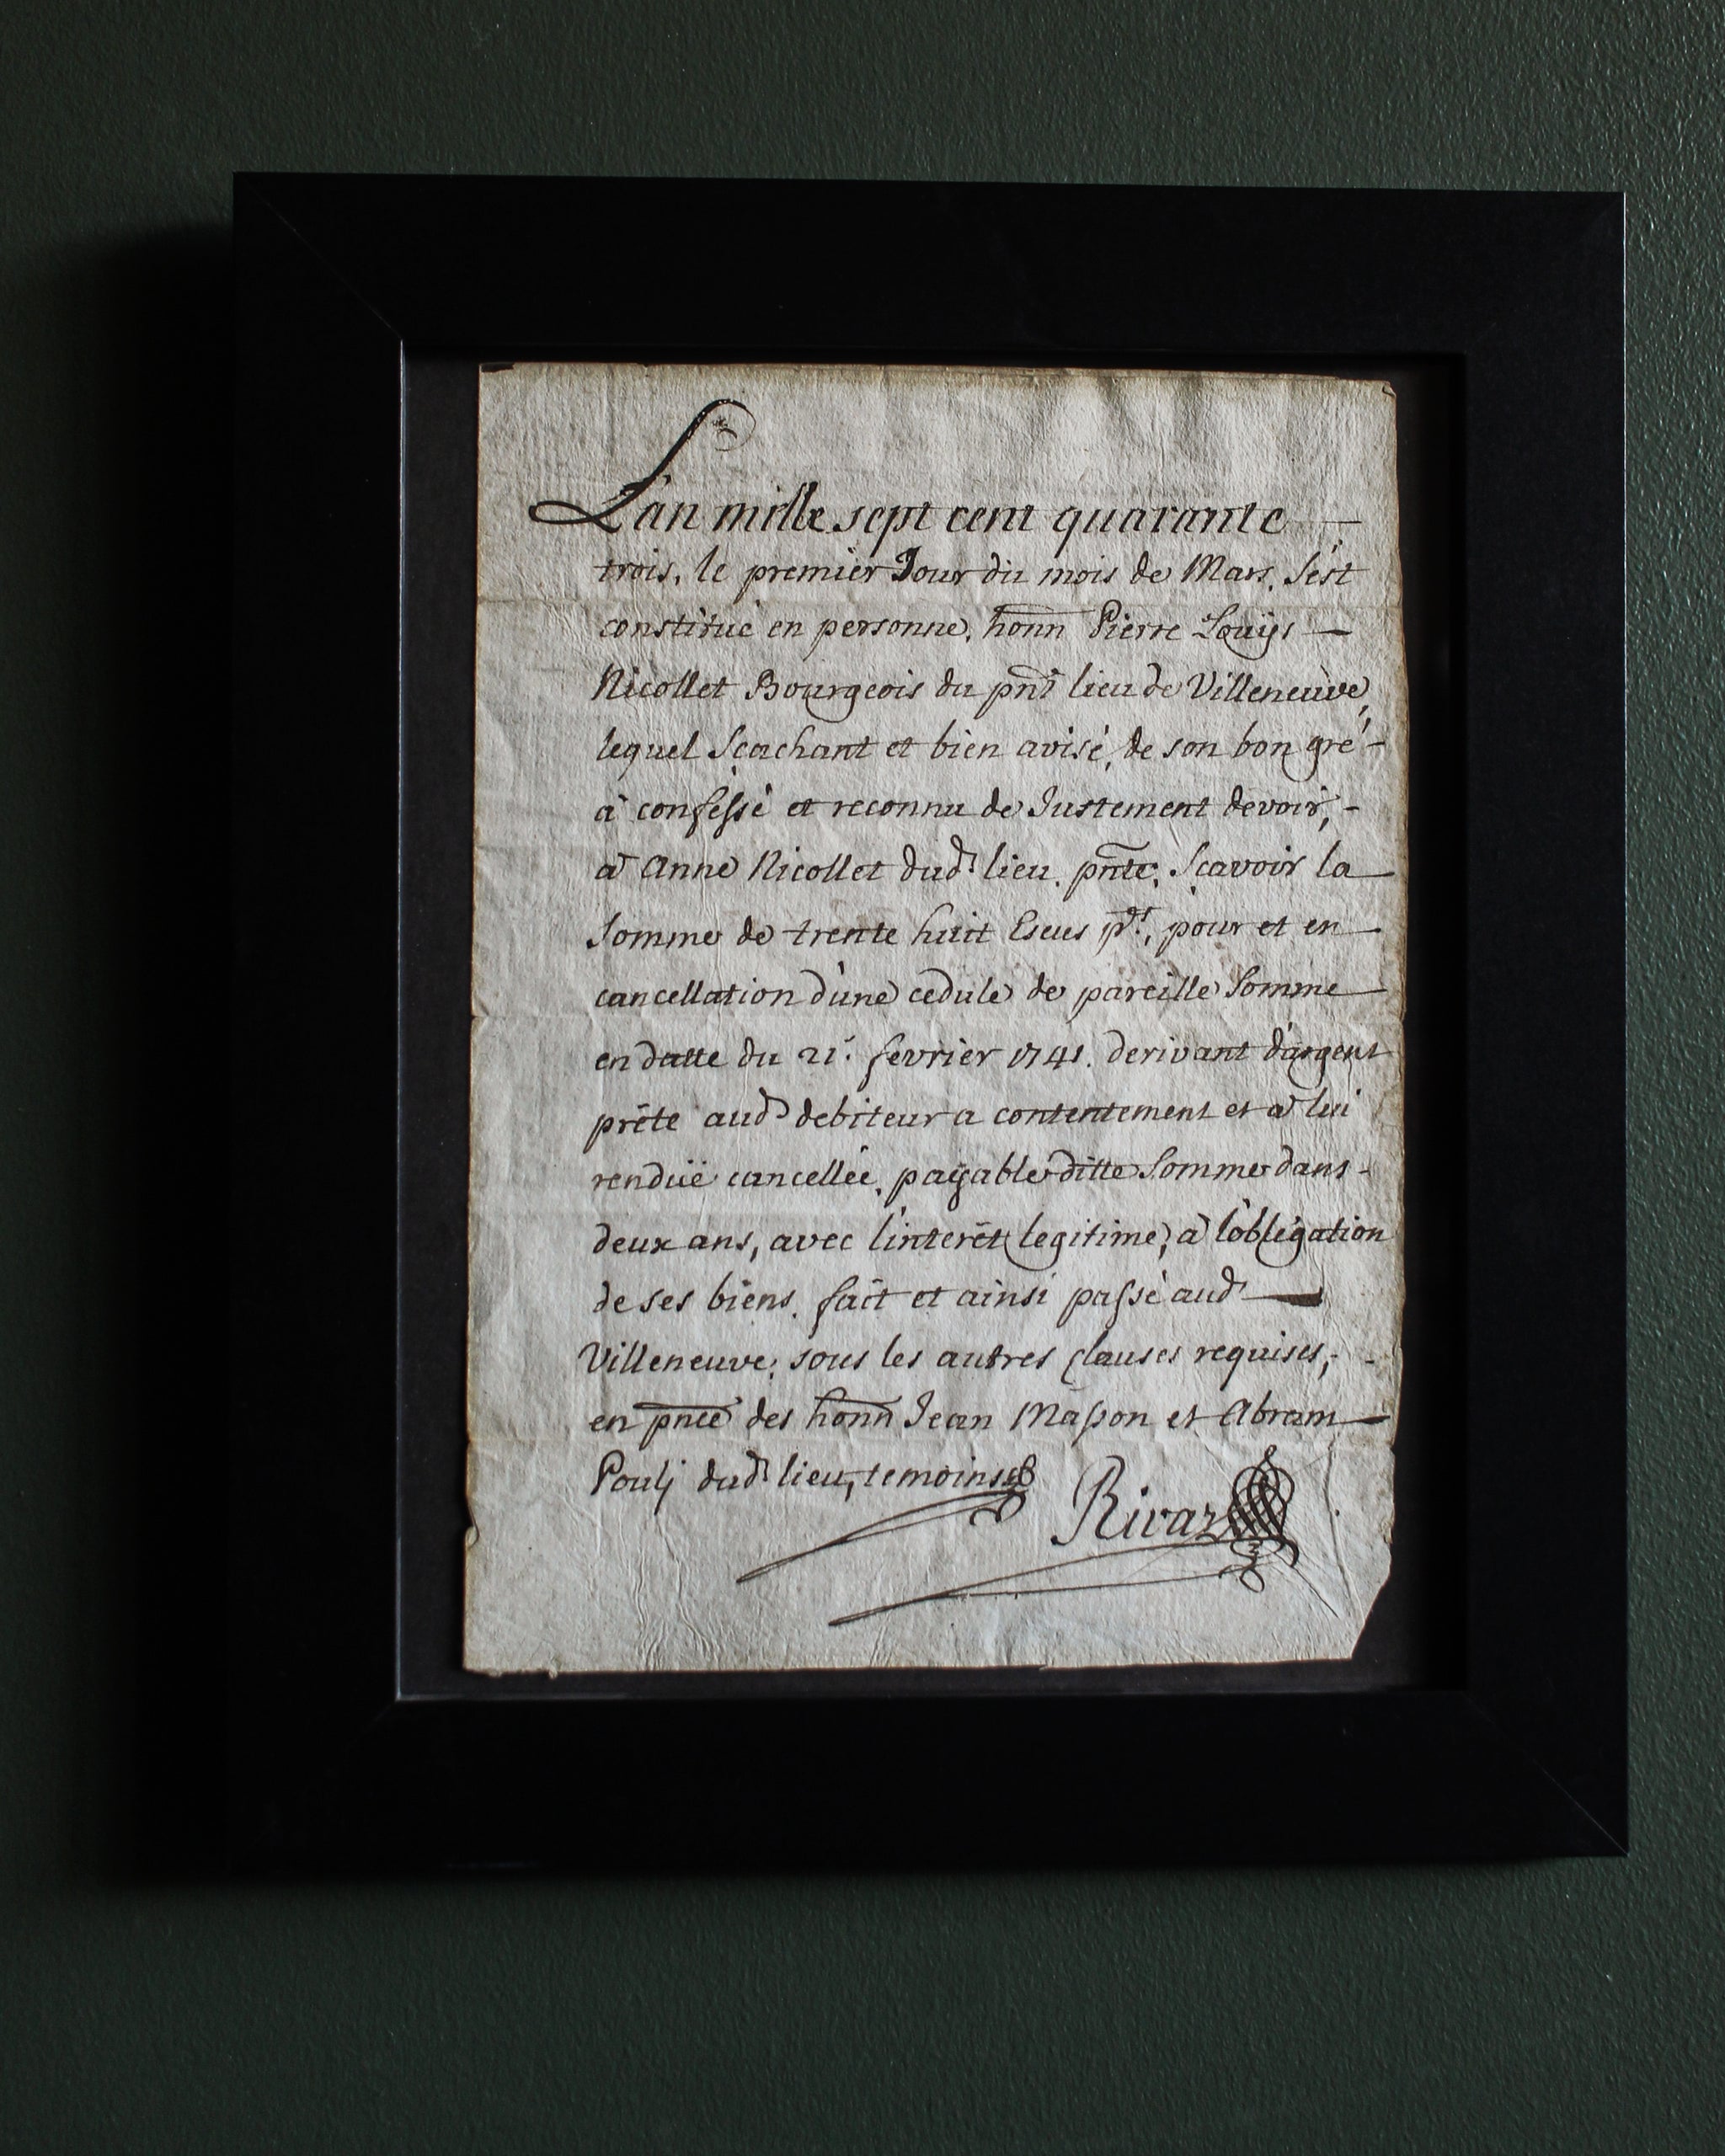 L'an mille sept cent quarante —
trois, le premier Jour du mois de Mars, s'est
constitué en personne, honn Pierre Louÿs —
Nicollet Bourgeois du pnt lieu de Villeneuve,
lequel sçachant et bien avisé, de son bon gré -
à confessé et reconnu de Justement devoir, -
à Anne Nicollet dud.t lieu, pnte, sçavoir la
somme de trente huit Escus p.ts, pour et en
cancellation d'une cedule de pareille somme
en datte du 21.e fevrier 1741. derivant d'argent
prête aud.t debiteur a contentement et à lui
renduë cancellée, paÿable ditte somme dans -
deux ans, avec l'interêt legitime, à l'obligation
de ses biens. fait et ainsi passé aud.t —
Villeneuve, sous les autres clauses requises, -
en pnce des honn Jean Masson et Abram
Poulj dud.t lieu, temoins
Rivaz